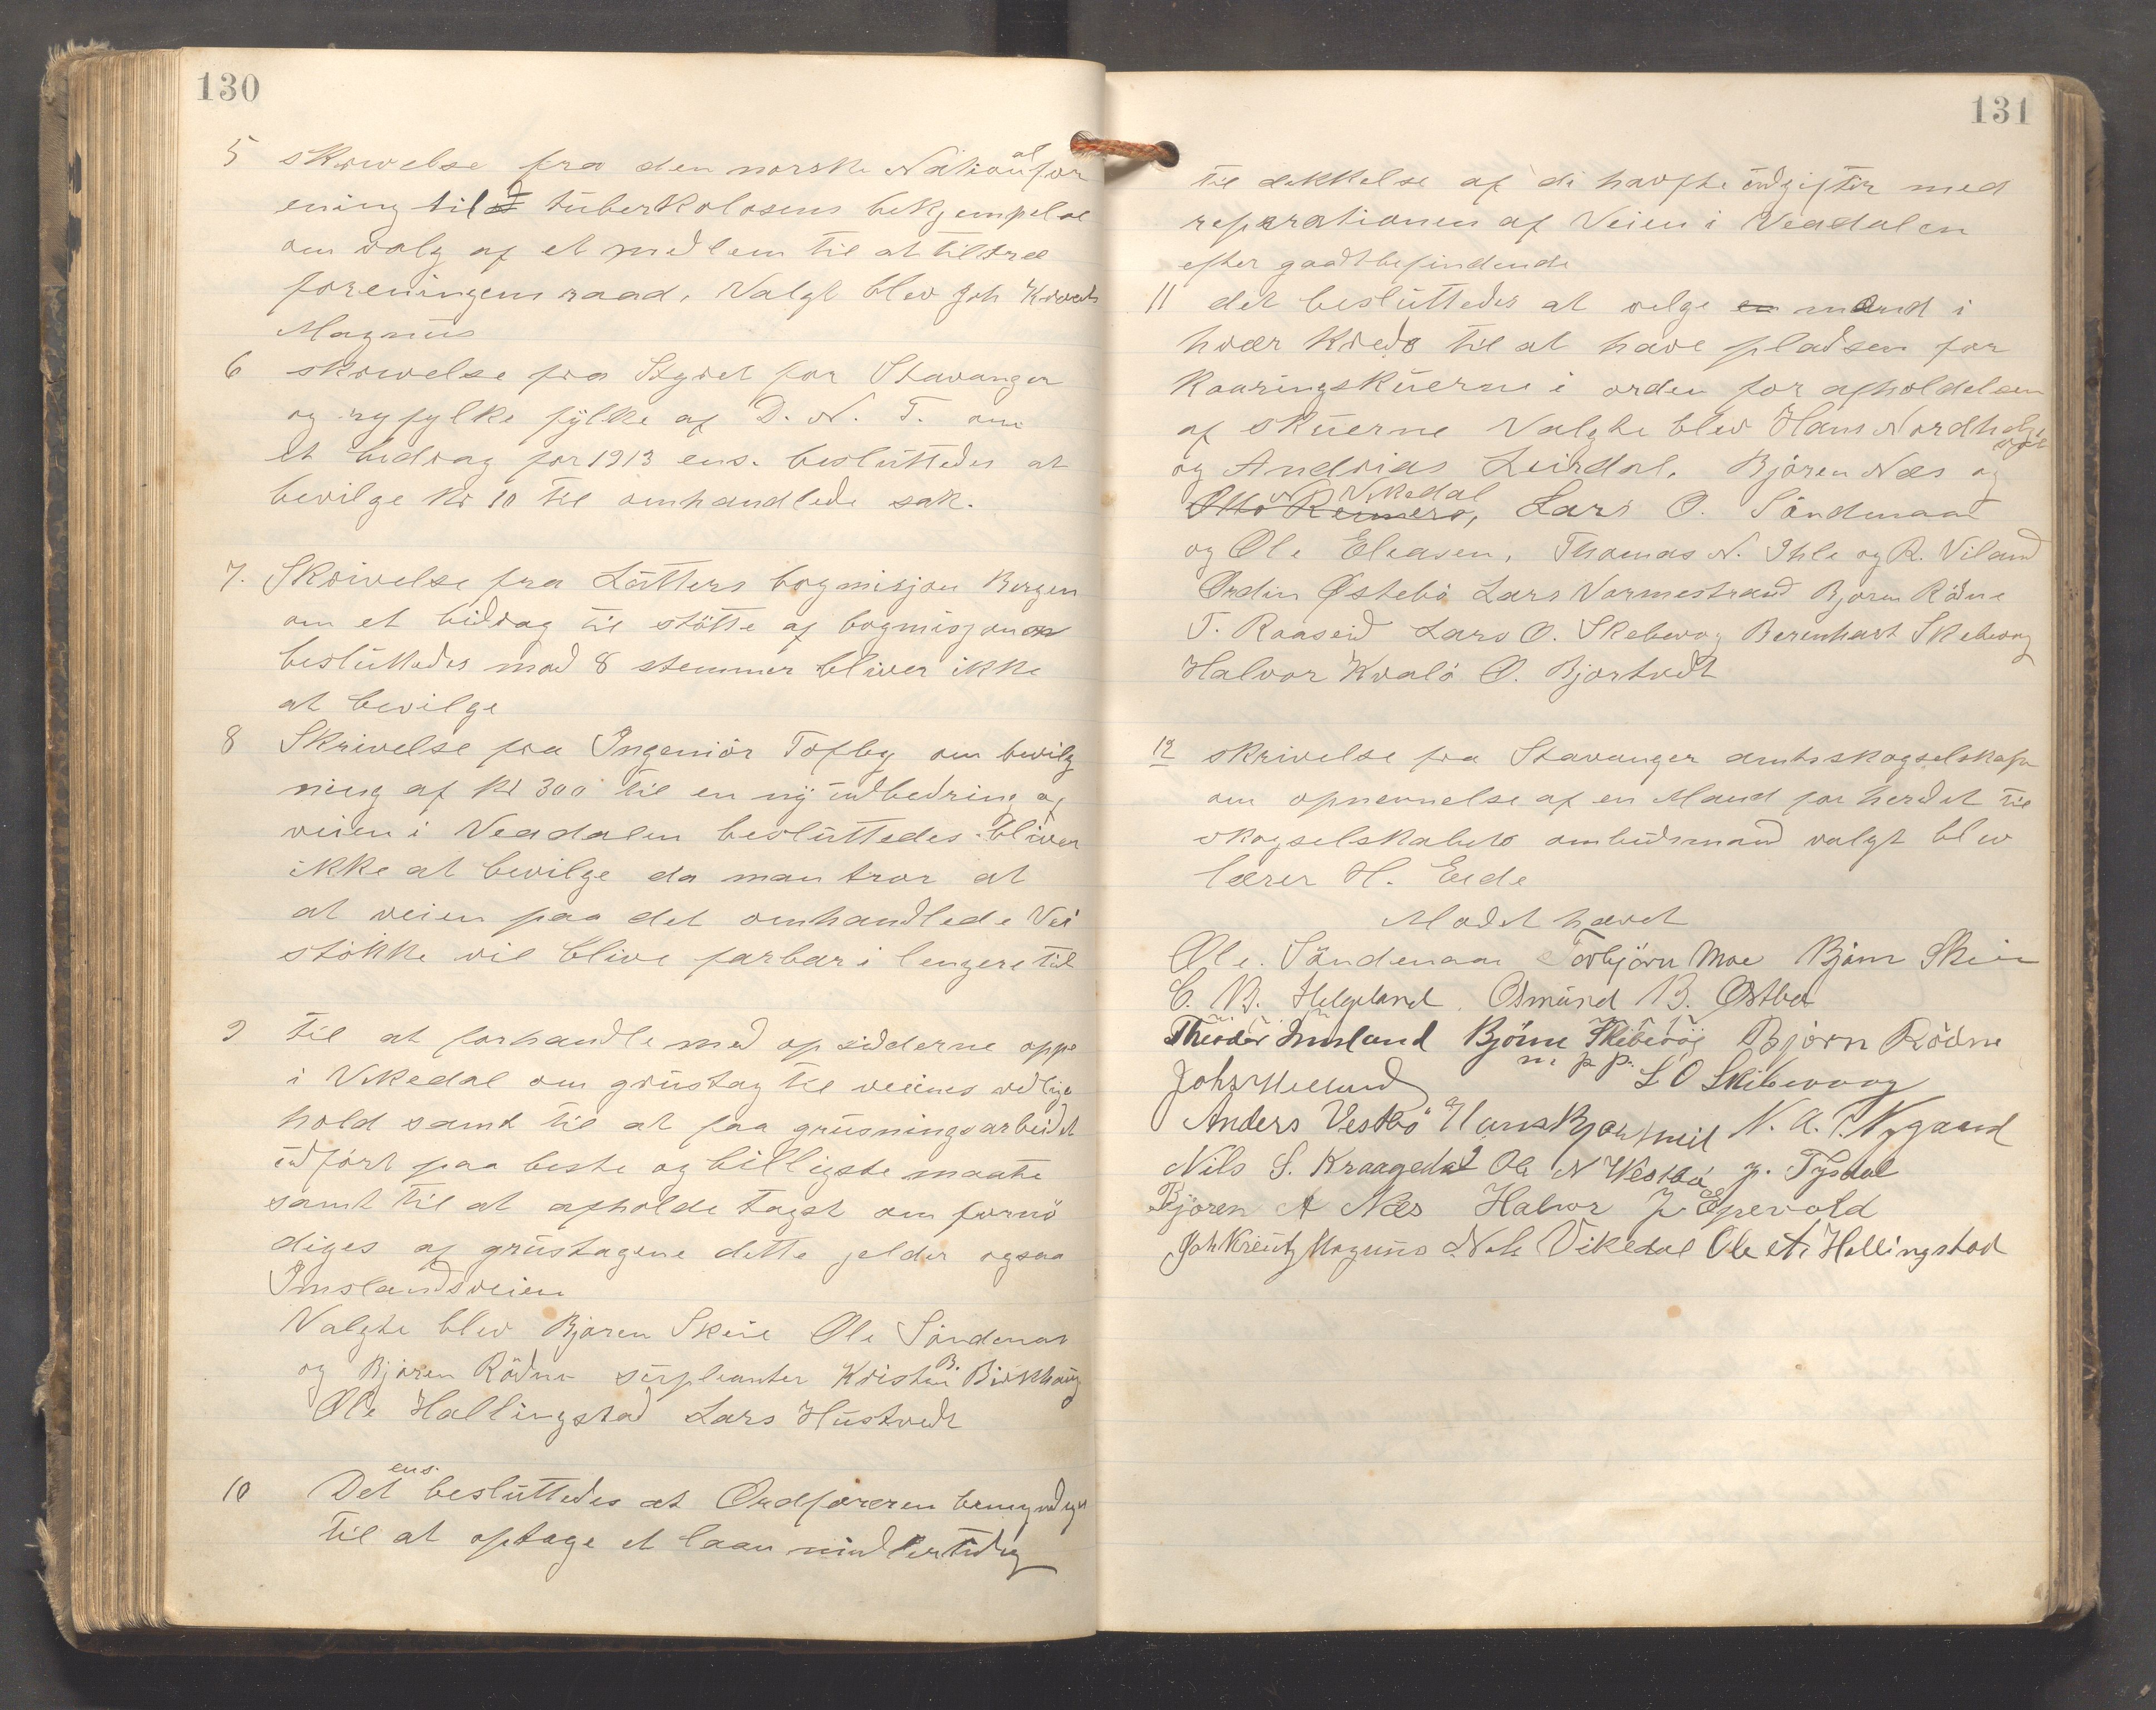 130
5 skrivelse fra den norske National for
ening til tuberkolosens bekjempelse
om valg af et medlem til at tiltræ
foreningens raad. Valgt blev Joh Kreutz
Magnus
6 skrivelse fra Styret for Stavanger
og ryfylke fylke af D. N. T. om
et bidrag for 1913 ens. besluttedes at
bevilge kr 10 til omhandlede sak.
7. Skrivelse fra Lutters bogmisjon Bergen
om et bidrag til stötte af bogmisjonen
besluttedes mod 8 stemmer bliver ikke
at bevilge
8 Skrivelse fra Ingeniör Tofby om bevilg
ning af kr 300 til en ny udbedring af
veien i Veadalen besluttedes bliver
ikke at bevilge da man tror at
at veien paa det omhandlede Vei
stökke vil blive farbar i lengere tid
9 til at forhandle med opsidderne oppe
i Vikedal om grustag til veiens vedlige
hold samt til at faa grusningsarbeidet
udfört paa beste og billigste maate
samt til at afholde tagst om fornö
diges af grustagene dette gelder ogsaa
Imslandsveien
Valgte blev Björen Skeie Ole Söndenaa
og Björen Rödne supleanter Kristen B. Birkhaug
Ole Hallingstad Lars Hustvedt
10 Det ens. besluttedes at Ordföreren bemyndiges
til at optage et laan midlertidig
131
til dekkelse af di havfte udgifter med
reparationen af Veien i Veadalen
efter goadtbefindende
11 det besluttedes at velge en mand i
hvær kreds til at have pladsen for
kaaringskuerne i orden for afholdelsen
af skuerne Valgte blev Hans Nordhelje
og Andreas Leirdal. Björen Næs og
N Vikedal
Otto Reimers, Lars O. Söndenaa
og Ole Eleasen, Thomas N. Ihle og R. Viland
Ordin Østebö Lars Varmestrand Björen Rödne
T. Raaseid Lars O. Skebevog Berenhart Skebevog
Halvor Kvalö O. Bjortvedt
12 skrivelse fra Stavanger amtsskogselskap
om opnevnelse af en Mand for herredet til
skogselskabets ombudsmand valgt blev
lærer H. Eide
Mødet hævet
Ole. Söndenaa Torbjörn Moe Björn Skeie
C. B. Helgeland. Osmund B. Østbø
Theodor Imsland Björne Skibevög Björn Rödne
m. p. p. L O Skibevaag
Anders Vestbö N. A. Nygaard
Nils S. Kraagedal Ole N Vestbö g. Tysdal
Björen A Næs Halvor J Epevold
Joh Kreutz Magnus Nils Vikedal Ole A. Hallingstad